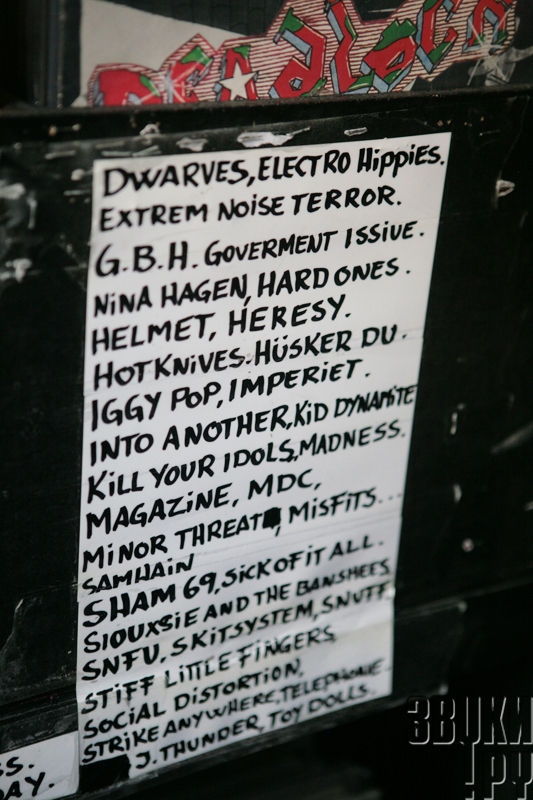 DEADLOCK
DWARVES, ELECTRO HiPPiES.
EXTREM NOiSE TERROR.
G.B.H. GOVERMENT ISSIVE.
NiNA HAGEN, HARD ONES.
HELMET, HERESY.
HOT KNiVES. HÜSKER DU.
IGGY POP, IMPERiET.
INTO ANOTHER, KiD DYNAMiTE
KiLL YOUR IDOLS, MADNESS.
MAGAZiNE, MDC,
MiNOR THREAT, MiSFiTS...
SAMHAiN
SHAM 69, SiCK OF iT ALL.
SiOUXSiE AND THE BANSHEES,
SNFU, SKiTSYSTEM, SNUFF,
STiFF LiTTLE FiNGERS,
SOCiAL DiSTORTiON,
STRiKE ANYWHERE, TELEPHONE.
J. THUNDER, TOY DOLLS.
SS.
DAY.
ЗВУКИ
!РУ